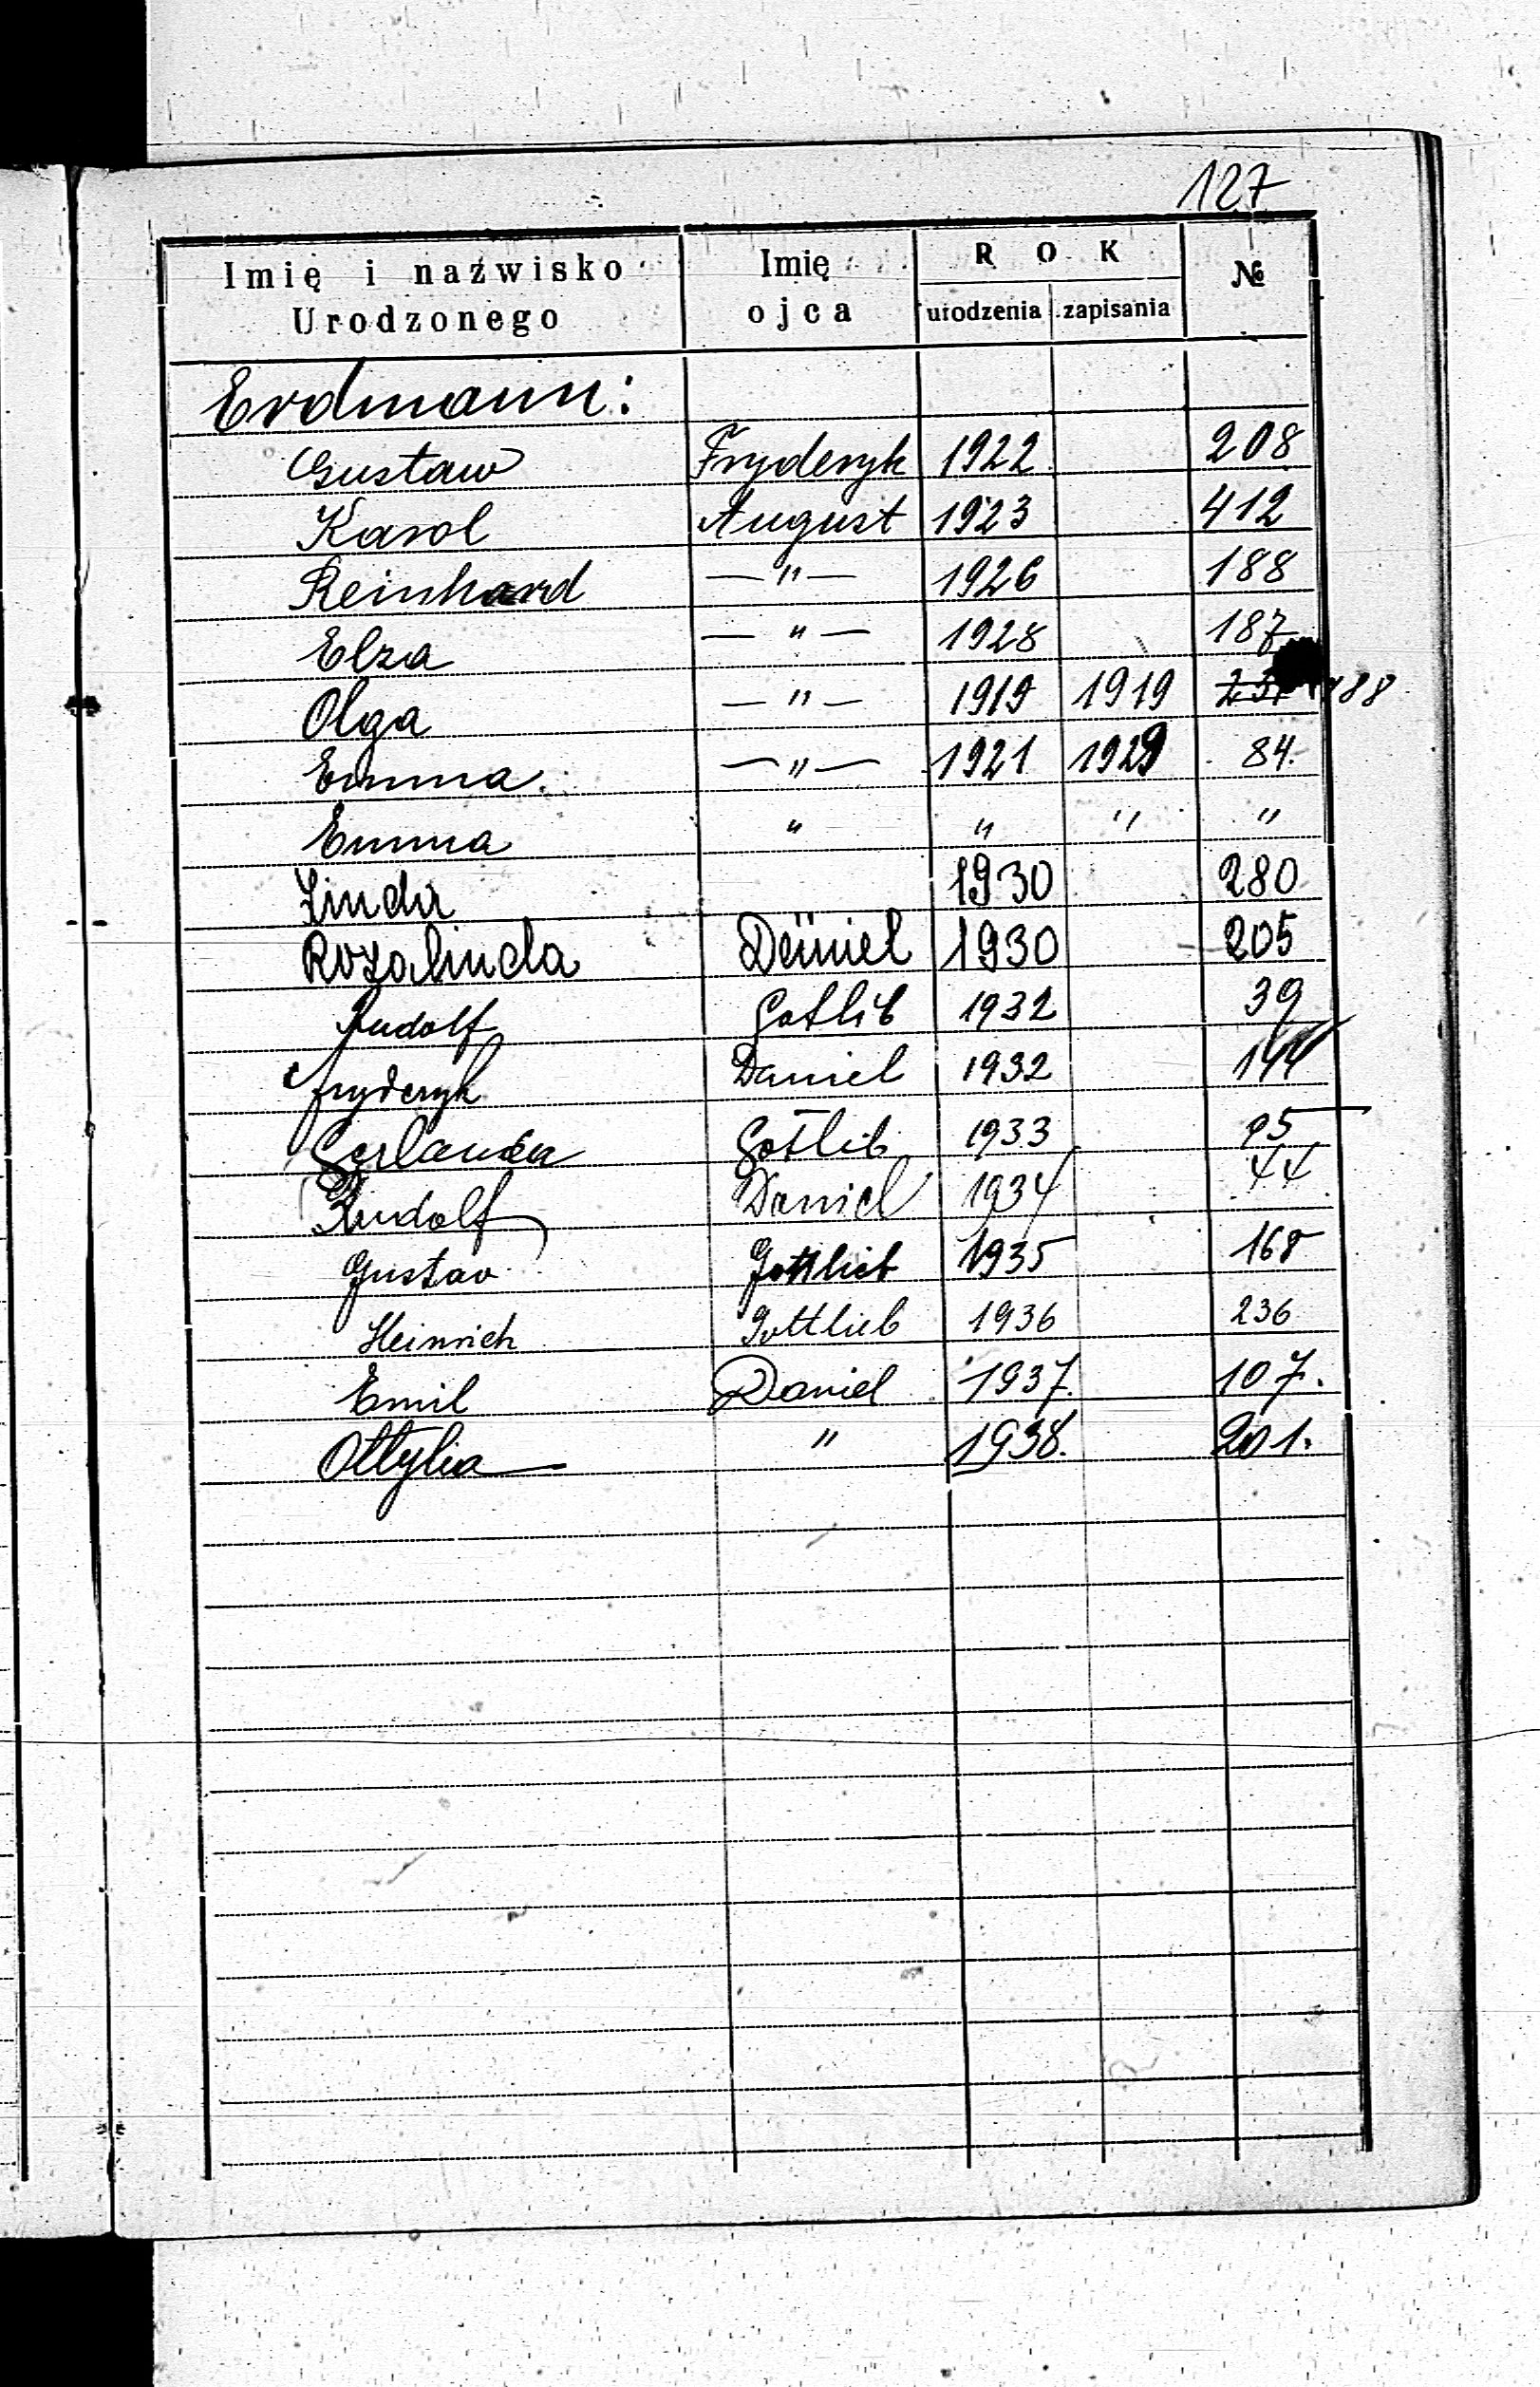 127
Imię i nazwisko Urodzonego | Imię ojca | ROK urodzenia | zapisania | №
Erdmann:
Gustaw Fryderyk 1922 208
Karol August 1923 412
Reinhard — " — 1926 188
Elza — " — 1928 187
Olga — " — 1919 1919 188
Emma. — " — 1921 1929 84.
Emma " " " "
Linda 1930 280
Rozalinda Daniel 1930 205
Rudolf Gotlib 1932 39
Fryderyk Daniel 1932 144
Gotlib 1933 95
Rudolf Daniel 1934 44
Gustav Gottlieb 1935 168
Heinrich Gottlieb 1936 236
Emil Daniel 1937. 107.
Ottylia " 1938. 201.